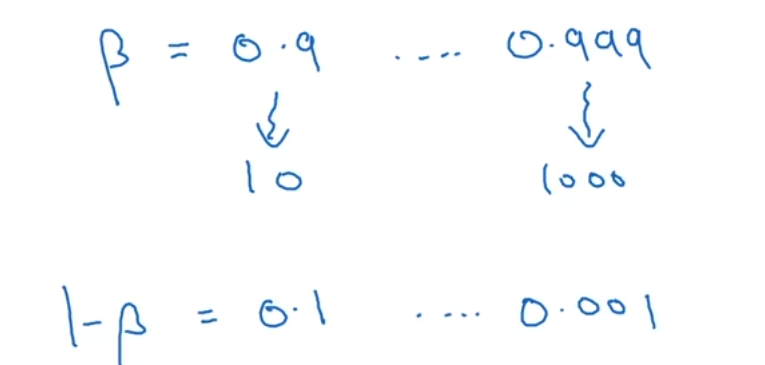 β = 0.9 .... 0.999
10 1000
1-β = 0.1 .... 0.001